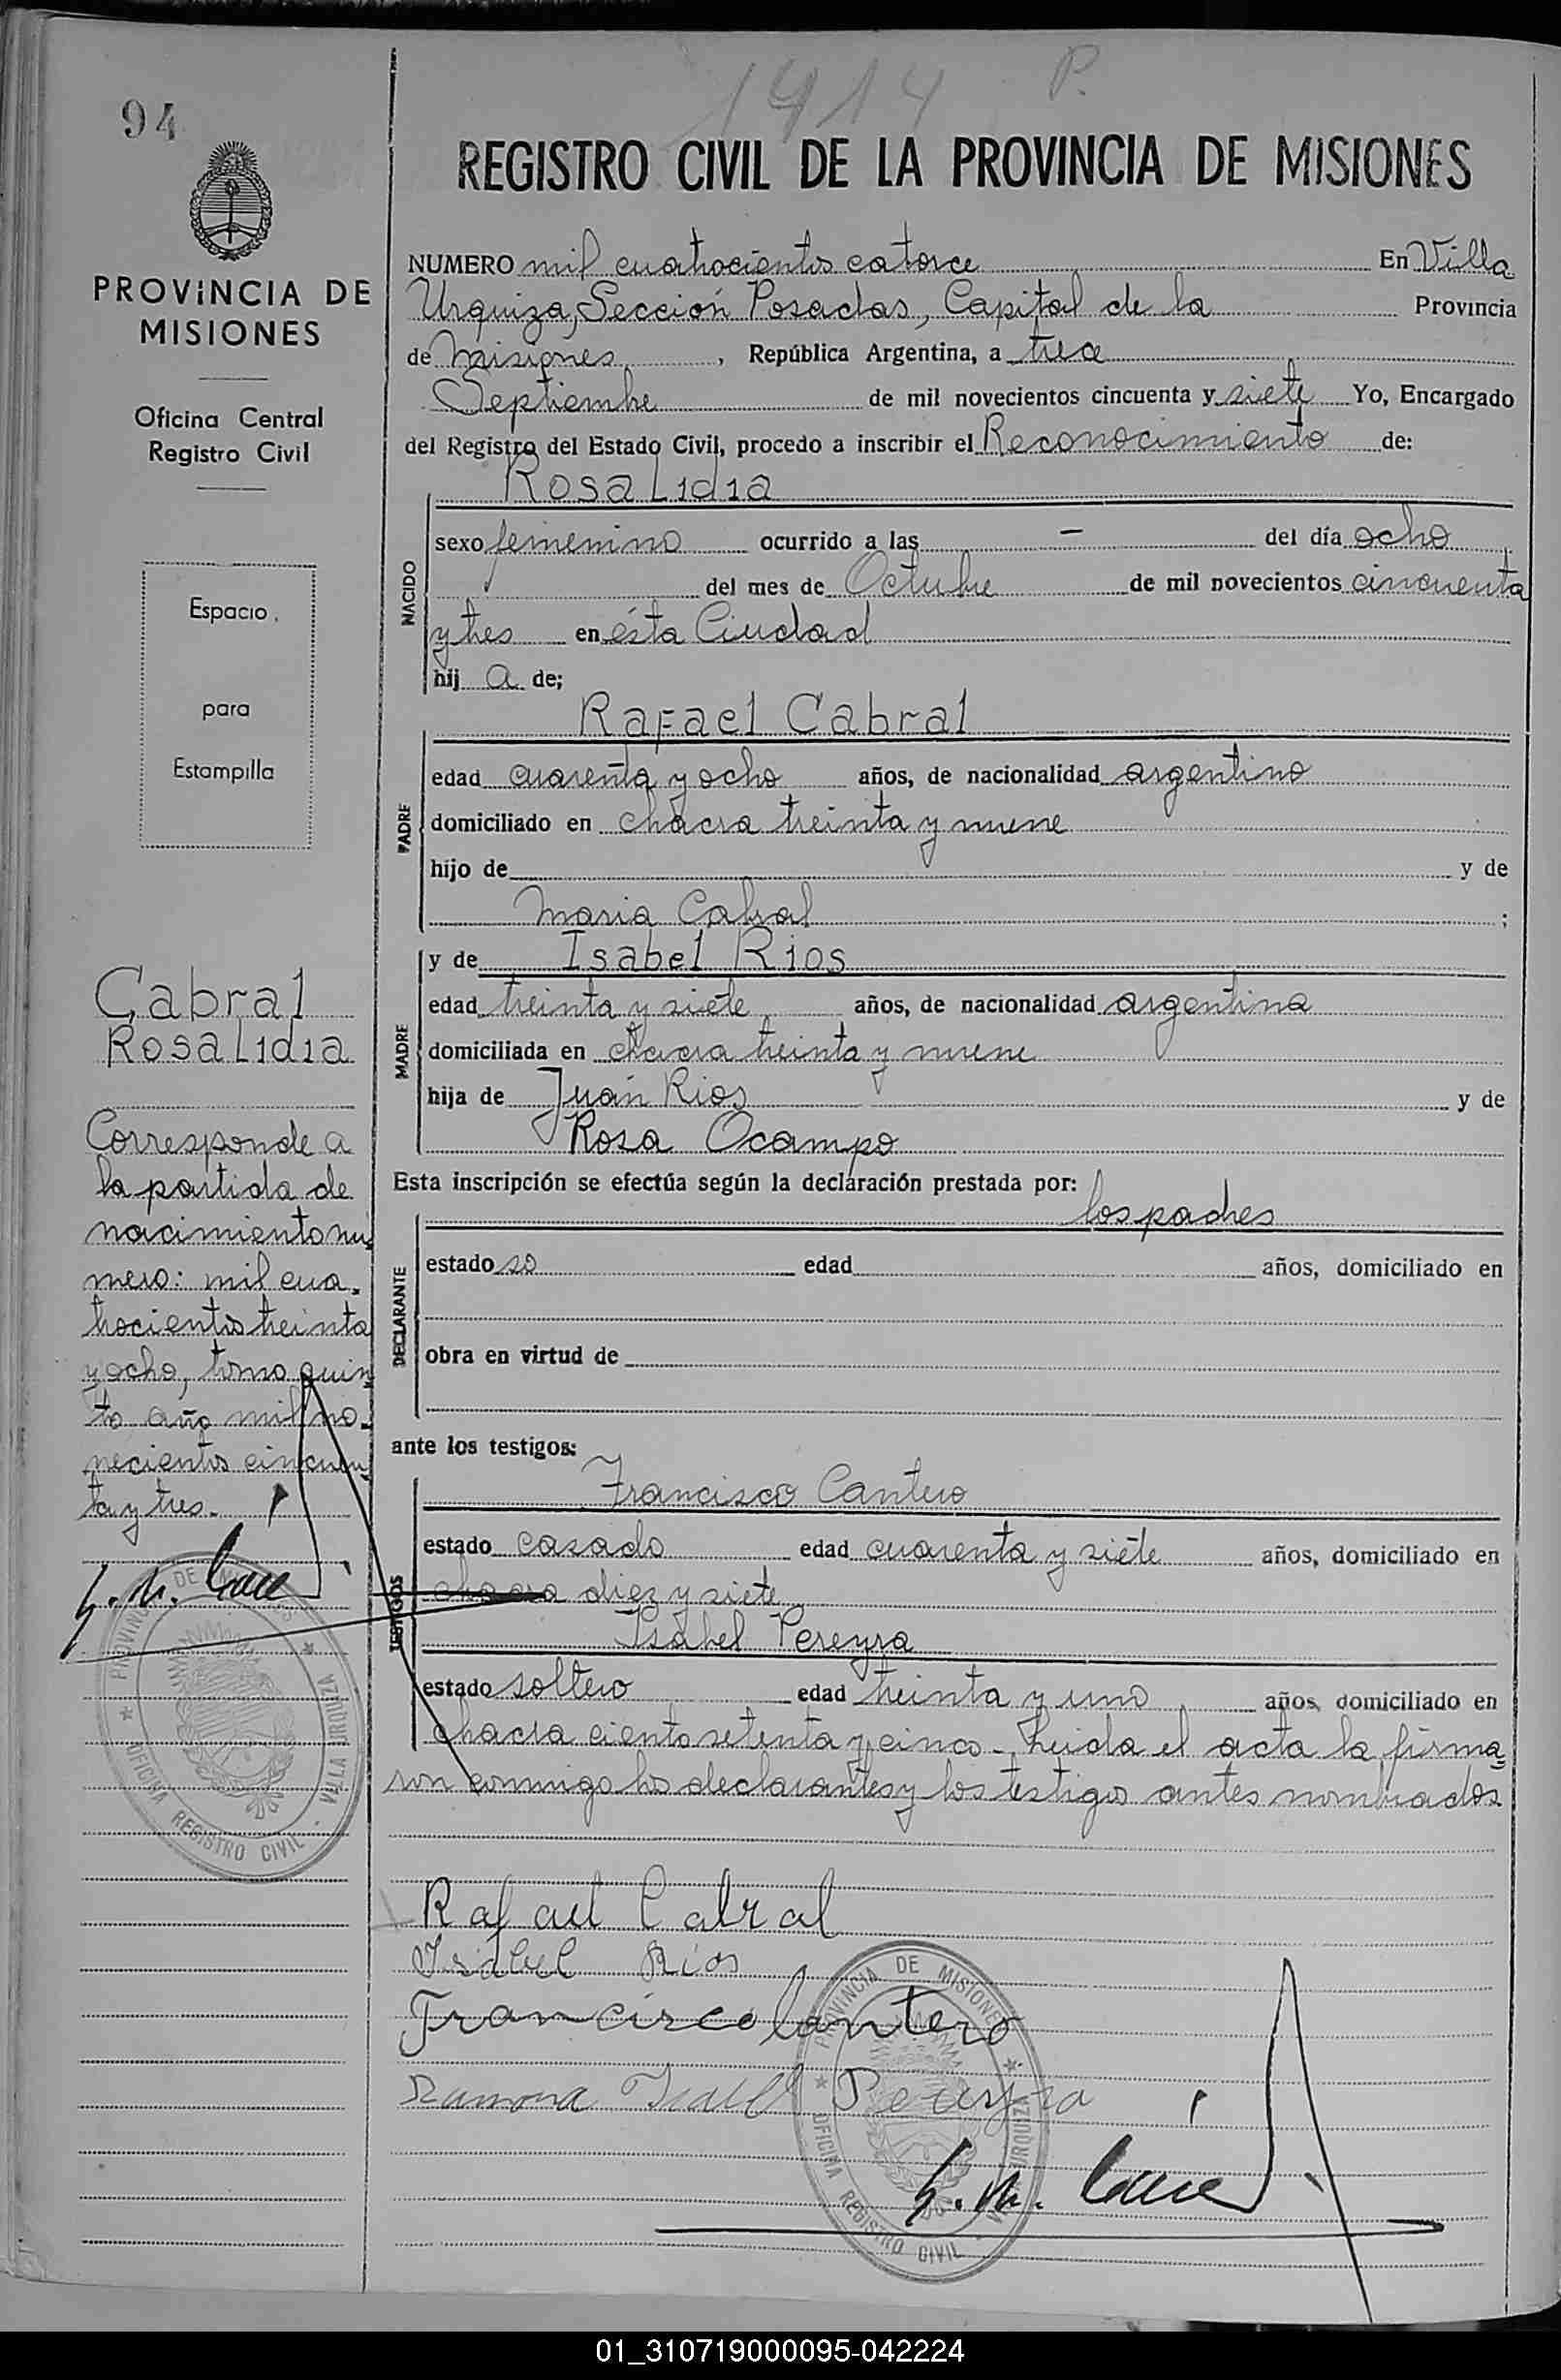 1414 P.
94
REGISTRO CIVIL DE LA PROVINCIA DE MISIONES
PROVINCIA DE
MISIONES
Oficina Central
Registro Civil
Espacio
para
Estampilla
NUMERO mil cuatrocientos catorce En Villa
Urquiza, Sección Posadas, Capital de la Provincia
de Misiones, República Argentina, a trece
Septiembre de mil novecientos cincuenta y siete Yo, Encargado
del Registro del Estado Civil, procedo a inscribir el Reconocimiento de:
Rosa Lidia
NACIDO
sexo femenino ocurrido a las - del día ocho
del mes de Octubre de mil novecientos cincuenta
y tres en ésta Ciudad
hij a de;
Rafael Cabral
PADRE
edad cuarenta y ocho años, de nacionalidad argentino
domiciliado en chacra treinta y nueve
hijo de y de
Maria Cabral ;
y de Isabel Rios
MADRE
edad treinta y siete años, de nacionalidad argentina
domiciliada en chacra treinta y nueve
hija de Juan Rios y de
Rosa Ocampo
Esta inscripción se efectúa según la declaración prestada por:
los padres
DECLARANTE
estado edad años, domiciliado en
obra en virtud de
ante los testigos:
Francisco Cantero
TESTIGOS
estado casado edad cuarenta y siete años, domiciliado en
chacra diez y siete
Isabel Pereyra
estado soltero edad treinta y uno años, domiciliado en
chacra ciento setenta y cinco. Leida el acta la firma=
ron conmigo los declarantes y los testigos antes nombrados
Rafael Cabral
Isabel Rios
Francisco Cantero
Ramona Isabel Pereyra
Cabral
Rosa Lidia
Corresponde a
la partida de
nacimiento nu
mero: mil cua
trocientos treinta
y ocho, tomo quin
to año mil no
vecientos cincuen
ta y tres.
PROVINCIA DE MISIONES
OFICINA REGISTRO CIVIL · VILLA URQUIZA
PROVINCIA DE MISIONES
OFICINA REGISTRO CIVIL URQUIZA
01_310719000095-042224